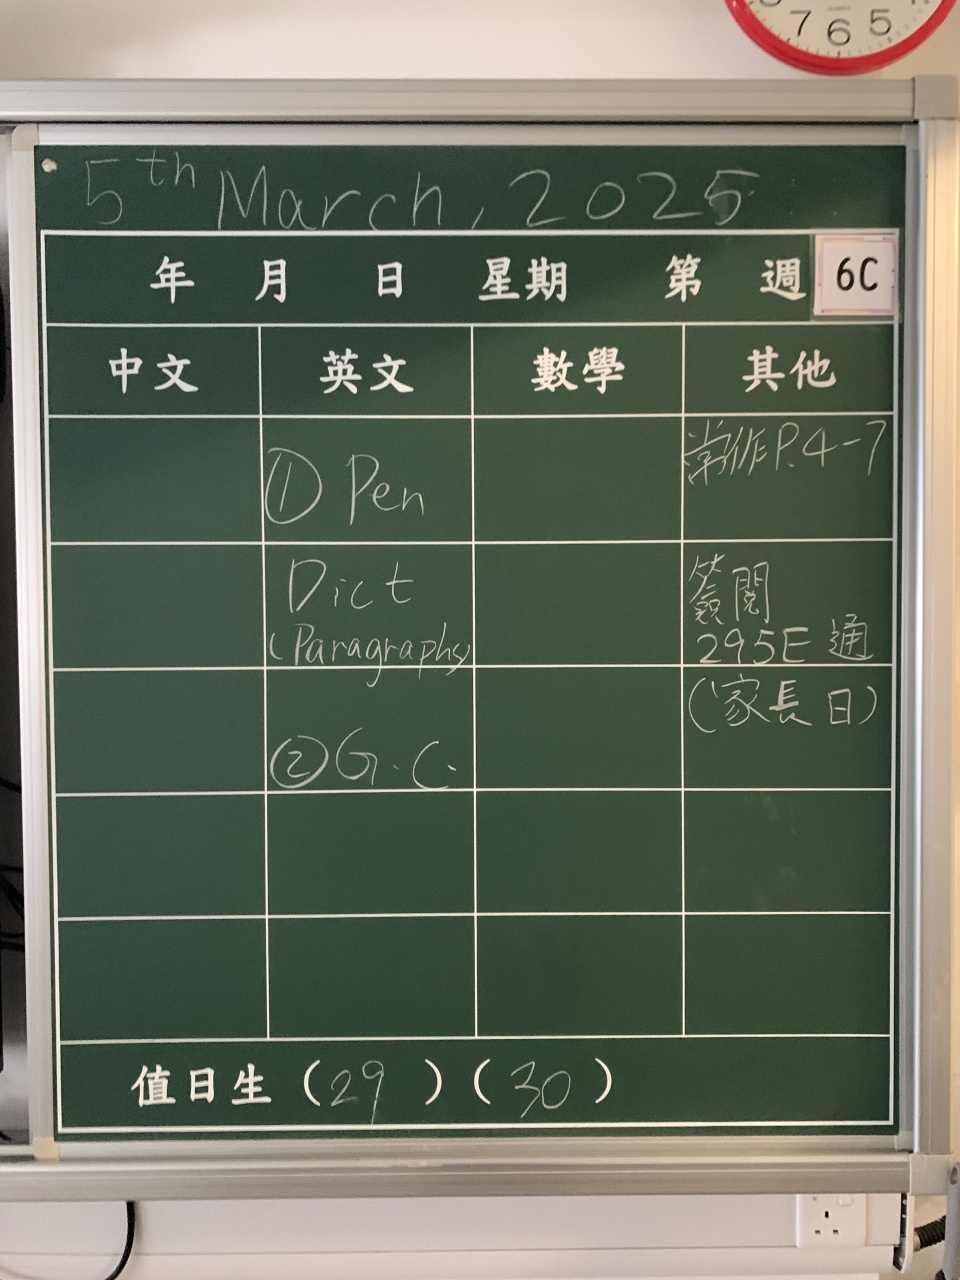 7 6 5
5th March, 2025
年 月 日 星期 第 週 6C
中文 英文 數學 其他
① Pen
Dict
(Paragraphs)
② G.C.
常作 P.4-7
簽閱
295E 通
(家長日)
值日生 (29) (30)